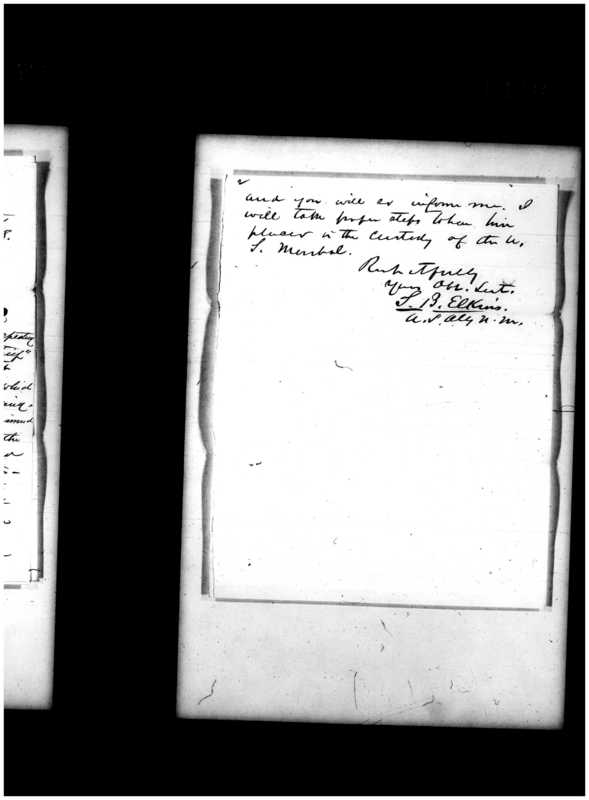 2
and you will so inform me. I
will take proper steps to have him
placed in the custody of the U.
S. Marshal.
Respectfully
Your Obt. Servt.
S. B. Elkins.
U.S. Atty N.M.
the